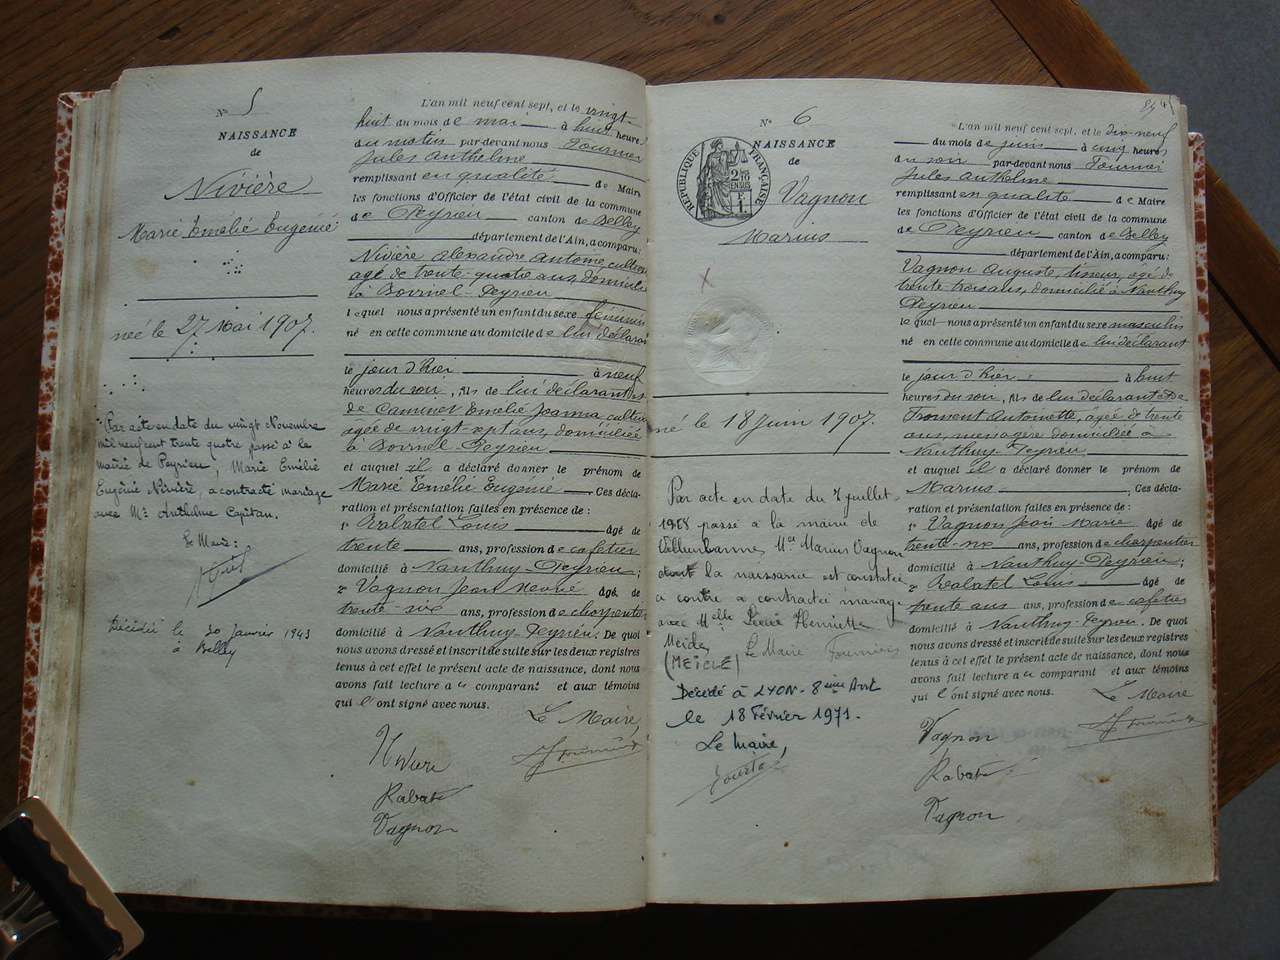 N° 5
NAISSANCE
de
Nivière
Marie Emélie Eugénie
née le 27 Mai 1907.
Par acte en date du vingt Novembre
mil neuf cent trente quatre passé à la
mairie de Peyrieu, Marie Emélie
Eugénie Nivière, a contracté mariage
avec Mr Anthelme Capitan.
Le Maire:
Décédée le 30 Janvier 1943
à Belley
L'an mil neuf cent sept, et le vingt-
huit du mois de mai à huit heures
du matin par-devant nous Fournier
Jules Anthelme
remplissant en qualité de Maire
les fonctions d'Officier de l'état civil de la commune
de Peyrieu canton de Belley
département de l'Ain, a comparu:
Nivière Alexandre Antoine, cultiv
agé de trente-quatre ans, domicilié
à Bovinel-Peyrieu
lequel nous a présenté un enfant du sexe féminin
né en cette commune au domicile de lui déclarant
le jour d'hier à neuf
heures du soir, fils de lui déclarant &
de Caminet Emélie Joanna, cultiv
agée de vingt-sept ans, domiciliée
à Bovinel-Peyrieu
et auquel il a déclaré donner le prénom de
Marie Emélie Eugénie Ces décla-
ration et présentation faites en présence de:
1° Rabatel Louis âgé de
trente ans, profession de cafetier
domicilié à Nanthuy-Peyrieu;
2° Vagnon Jean Marie âgé de
trente-six ans, profession de charpentier
domicilié à Nanthuy-Peyrieu. De quoi
nous avons dressé et inscrit de suite sur les deux registres
tenus à cet effet le présent acte de naissance, dont nous
avons fait lecture au comparant et aux témoins
qui l'ont signé avec nous.
Le Maire,
Nivière
Rabatel
Vagnon
N° 6
NAISSANCE
de
RÉPUBLIQUE FRANÇAISE
2/10
EN SUS
Vagnon
Marius
né le 18 Juin 1907.
Par acte en date du 7 juillet
1928 passé à la mairie de
Villeurbanne, Mr Marius Vagnon
dont la naissance est constatée
ci contre a contracté mariage
avec Melle Henriette
Meïcle
(MEÏCLE) Le Maire Fournier
Décédé à LYON-8ème Art
le 18 Février 1971.
Le Maire,
L'an mil neuf cent sept, et le dix-neuf
du mois de juin à cinq heures
du soir par-devant nous Fournier
Jules Anthelme
remplissant en qualité de Maire
les fonctions d'Officier de l'état civil de la commune
de Peyrieu canton de Belley
département de l'Ain, a comparu:
Vagnon Auguste, tisseur, agé de
trente-trois ans, domicilié à Nanthuy
Peyrieu
lequel nous a présenté un enfant du sexe masculin
né en cette commune au domicile de lui déclarant
le jour d'hier à huit
heures du soir, fils de lui déclarant & de
Froment Antoinette, âgée de trente
ans, ménagère domiciliée à
Nanthuy-Peyrieu
et auquel il a déclaré donner le prénom de
Marius Ces décla-
ration et présentation faites en présence de:
1° Vagnon Jean Marie âgé de
trente-six ans, profession de charpentier
domicilié à Nanthuy-Peyrieu;
2° Rabatel Louis âgé de
trente ans ans, profession de cafetier
domicilié à Nanthuy-Peyrieu. De quoi
nous avons dressé et inscrit de suite sur les deux registres
tenus à cet effet le présent acte de naissance, dont nous
avons fait lecture au comparant et aux témoins
qui l'ont signé avec nous.
Le Maire
Vagnon
Rabatel
Vagnon